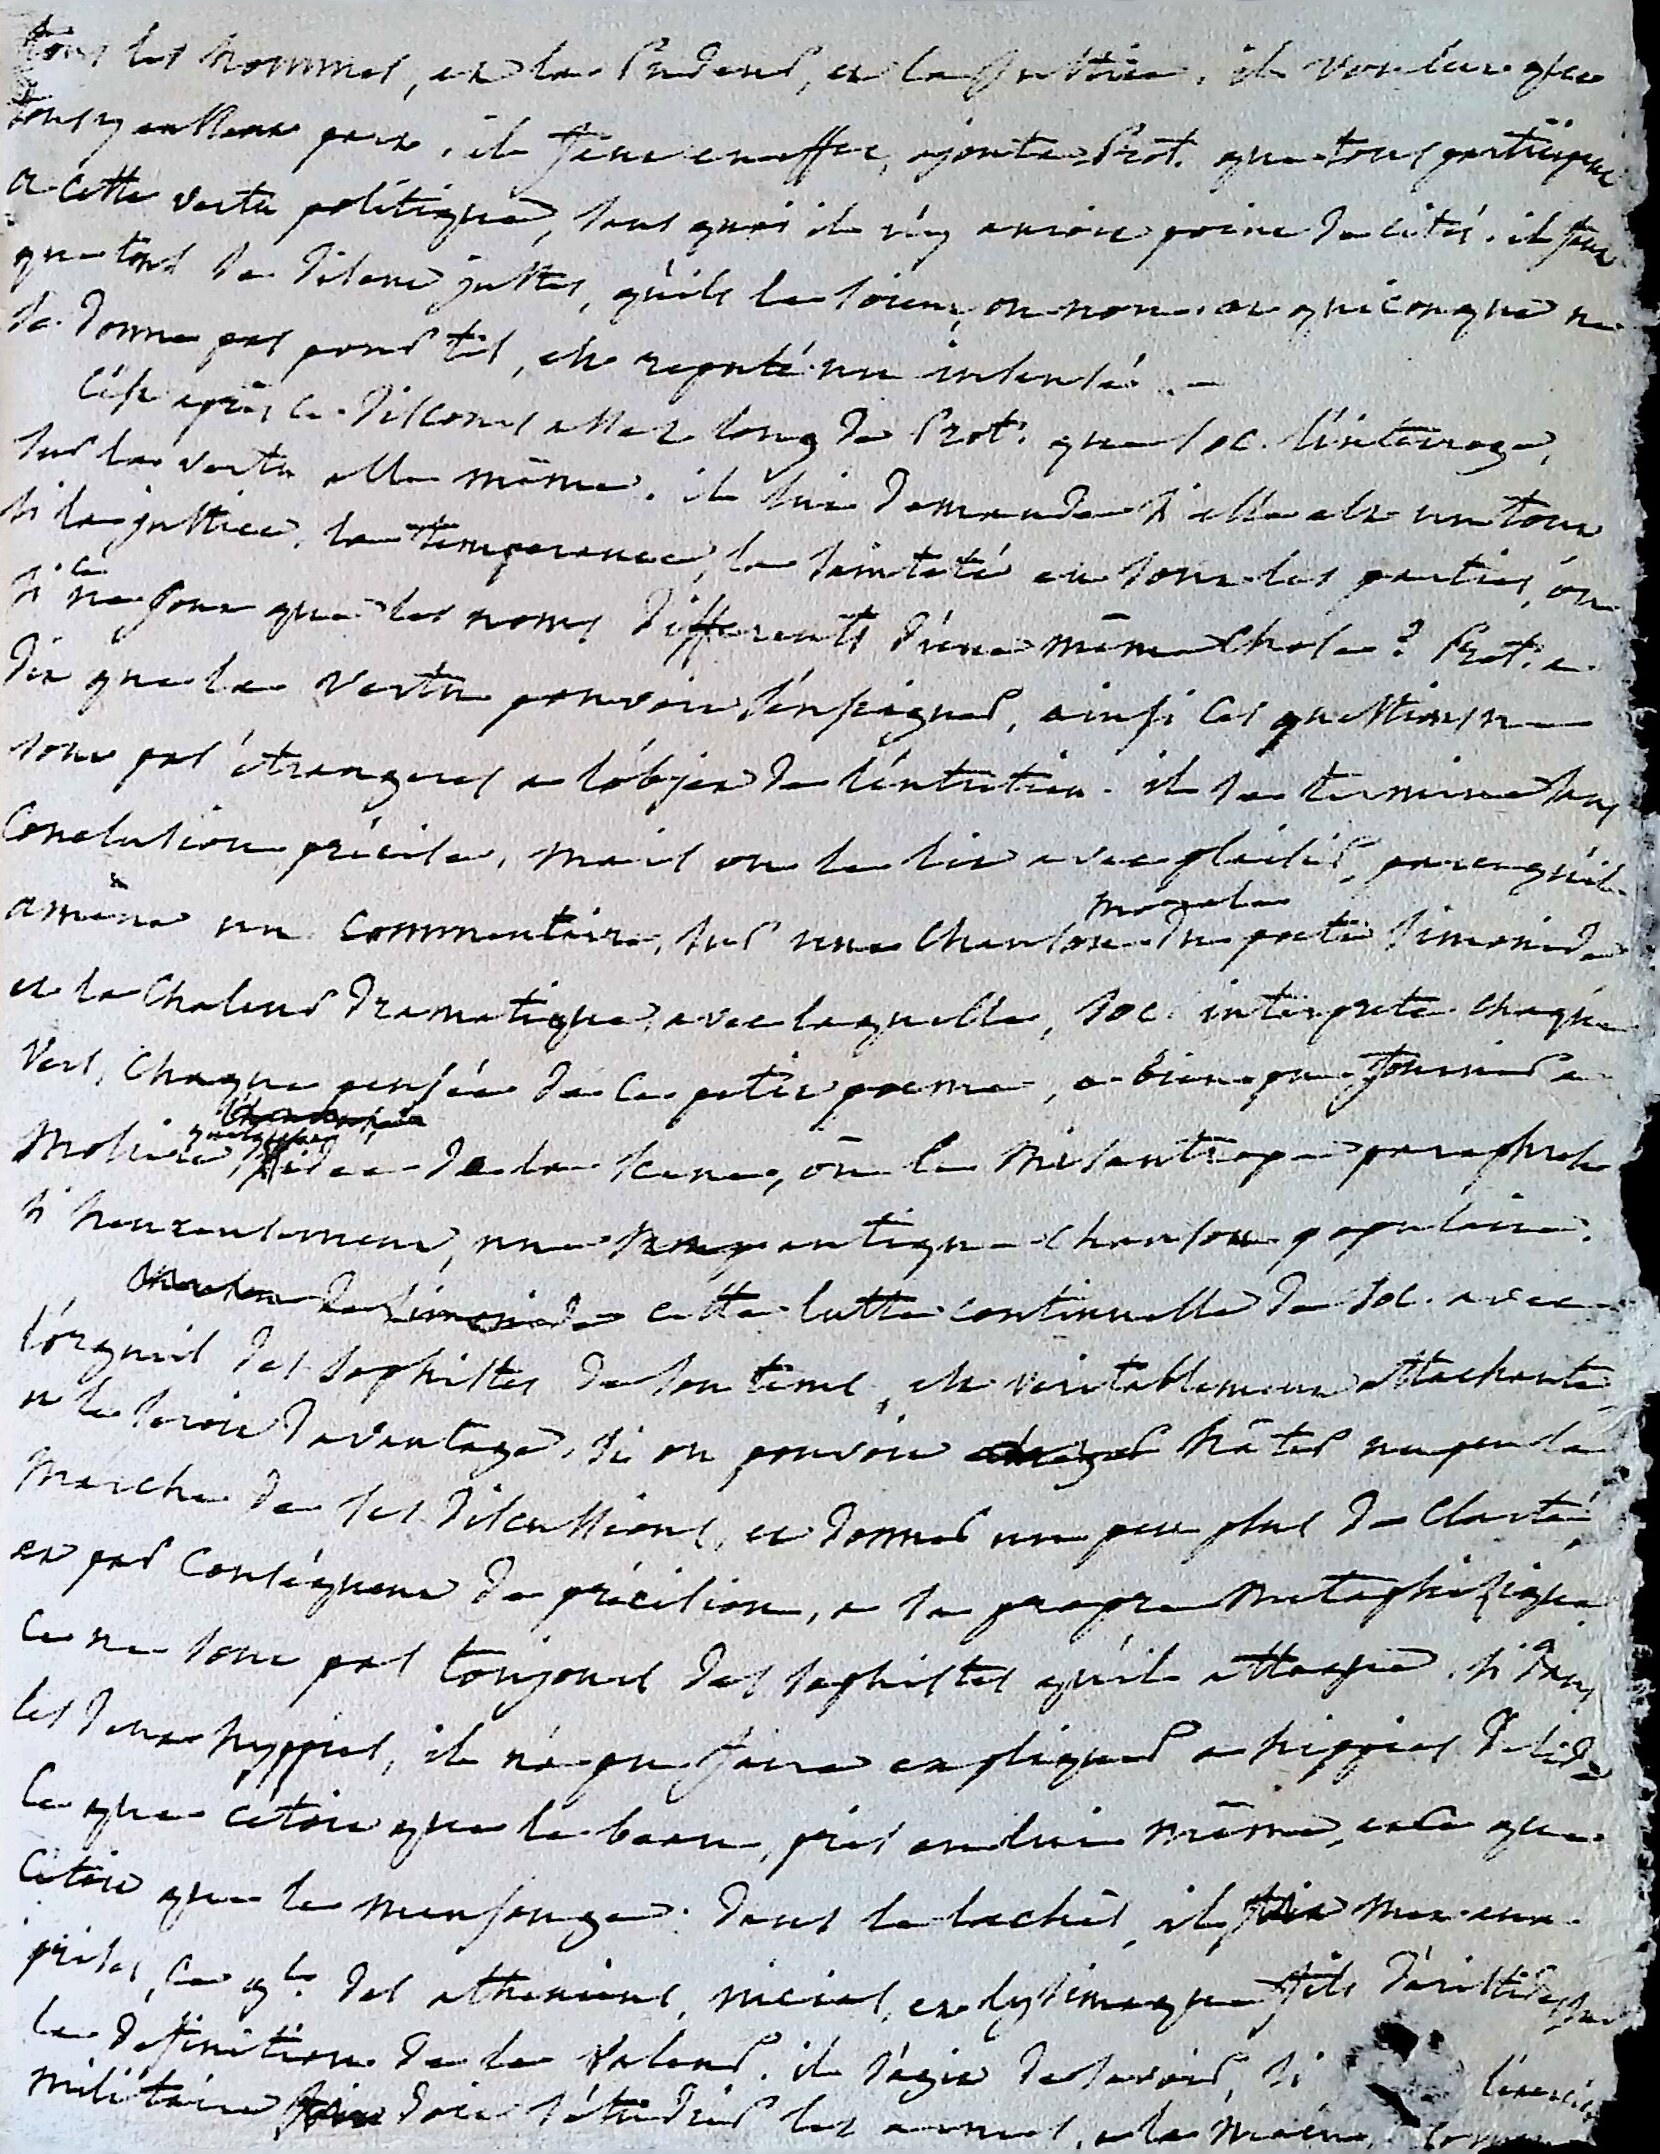 tous les hommes, et la pudeur, et la justice. il voulut que
tous y eussent part. il faut en effet, ajoute Prot. que tous participent
a cette vertu politique, sans quoi il n'y auroit point de cités. il faut
que tous se disent justes, qu'ils le soient, ou non. et quiconque ne
se donne pas pour tel, est reputé un insensé. –
C'est après ce discours assez long de Prot. que Soc. l'interroge,
sur la vertu elle même. il lui demande si elle est un tout
si la justice, la temperance, la sainteté en sont les parties, ou
si ce ne sont que les noms differents d'une même chose? Prot. a
dit que la vertu pouvoit s'enseigner, ainsi ces questions ne
sont pas étrangeres a l'objet de l'entretien. il se termine sans
conclusion précise, mais on le lit avec plaisir, parcequ'il
amène un commentaire, sur une chanson morale du poete Simonide
et la chaleur dramatique, avec laquelle, Soc. interprete chaque
vers, chaque pensée de ce petit poeme, a bien pu fournir a
Moliere, quelqu'idée de la scene, où le Misantrope paraphrase
si heureusement, une antique chanson populaire.
cette lutte continuelle de Soc. avec
l'orgueil des sophistes de son tems, est veritablement attachante
et le seroit davantage, si on pouvoit hâter un peu la
marche de ses discussions, et donner un peu plus de clarté,
et par conséquent de précision, a sa propre metaphisique
ce ne sont pas toujours des sophistes qu'il attaque. si dans
les deux hyppias, il n'a pu faire expliquer a hippias d'elide
ce que c'étoit que le beau, pris en lui même, et ce que
c'étoit que le mensonge. dans le lachès, il met aux
prises, ce gl. des atheniens, nicias, et lysimaque fils d'aristide, sur
la definition de la valeur. il s'agit de savoir, si l'exercice
militaire doit s'étudier